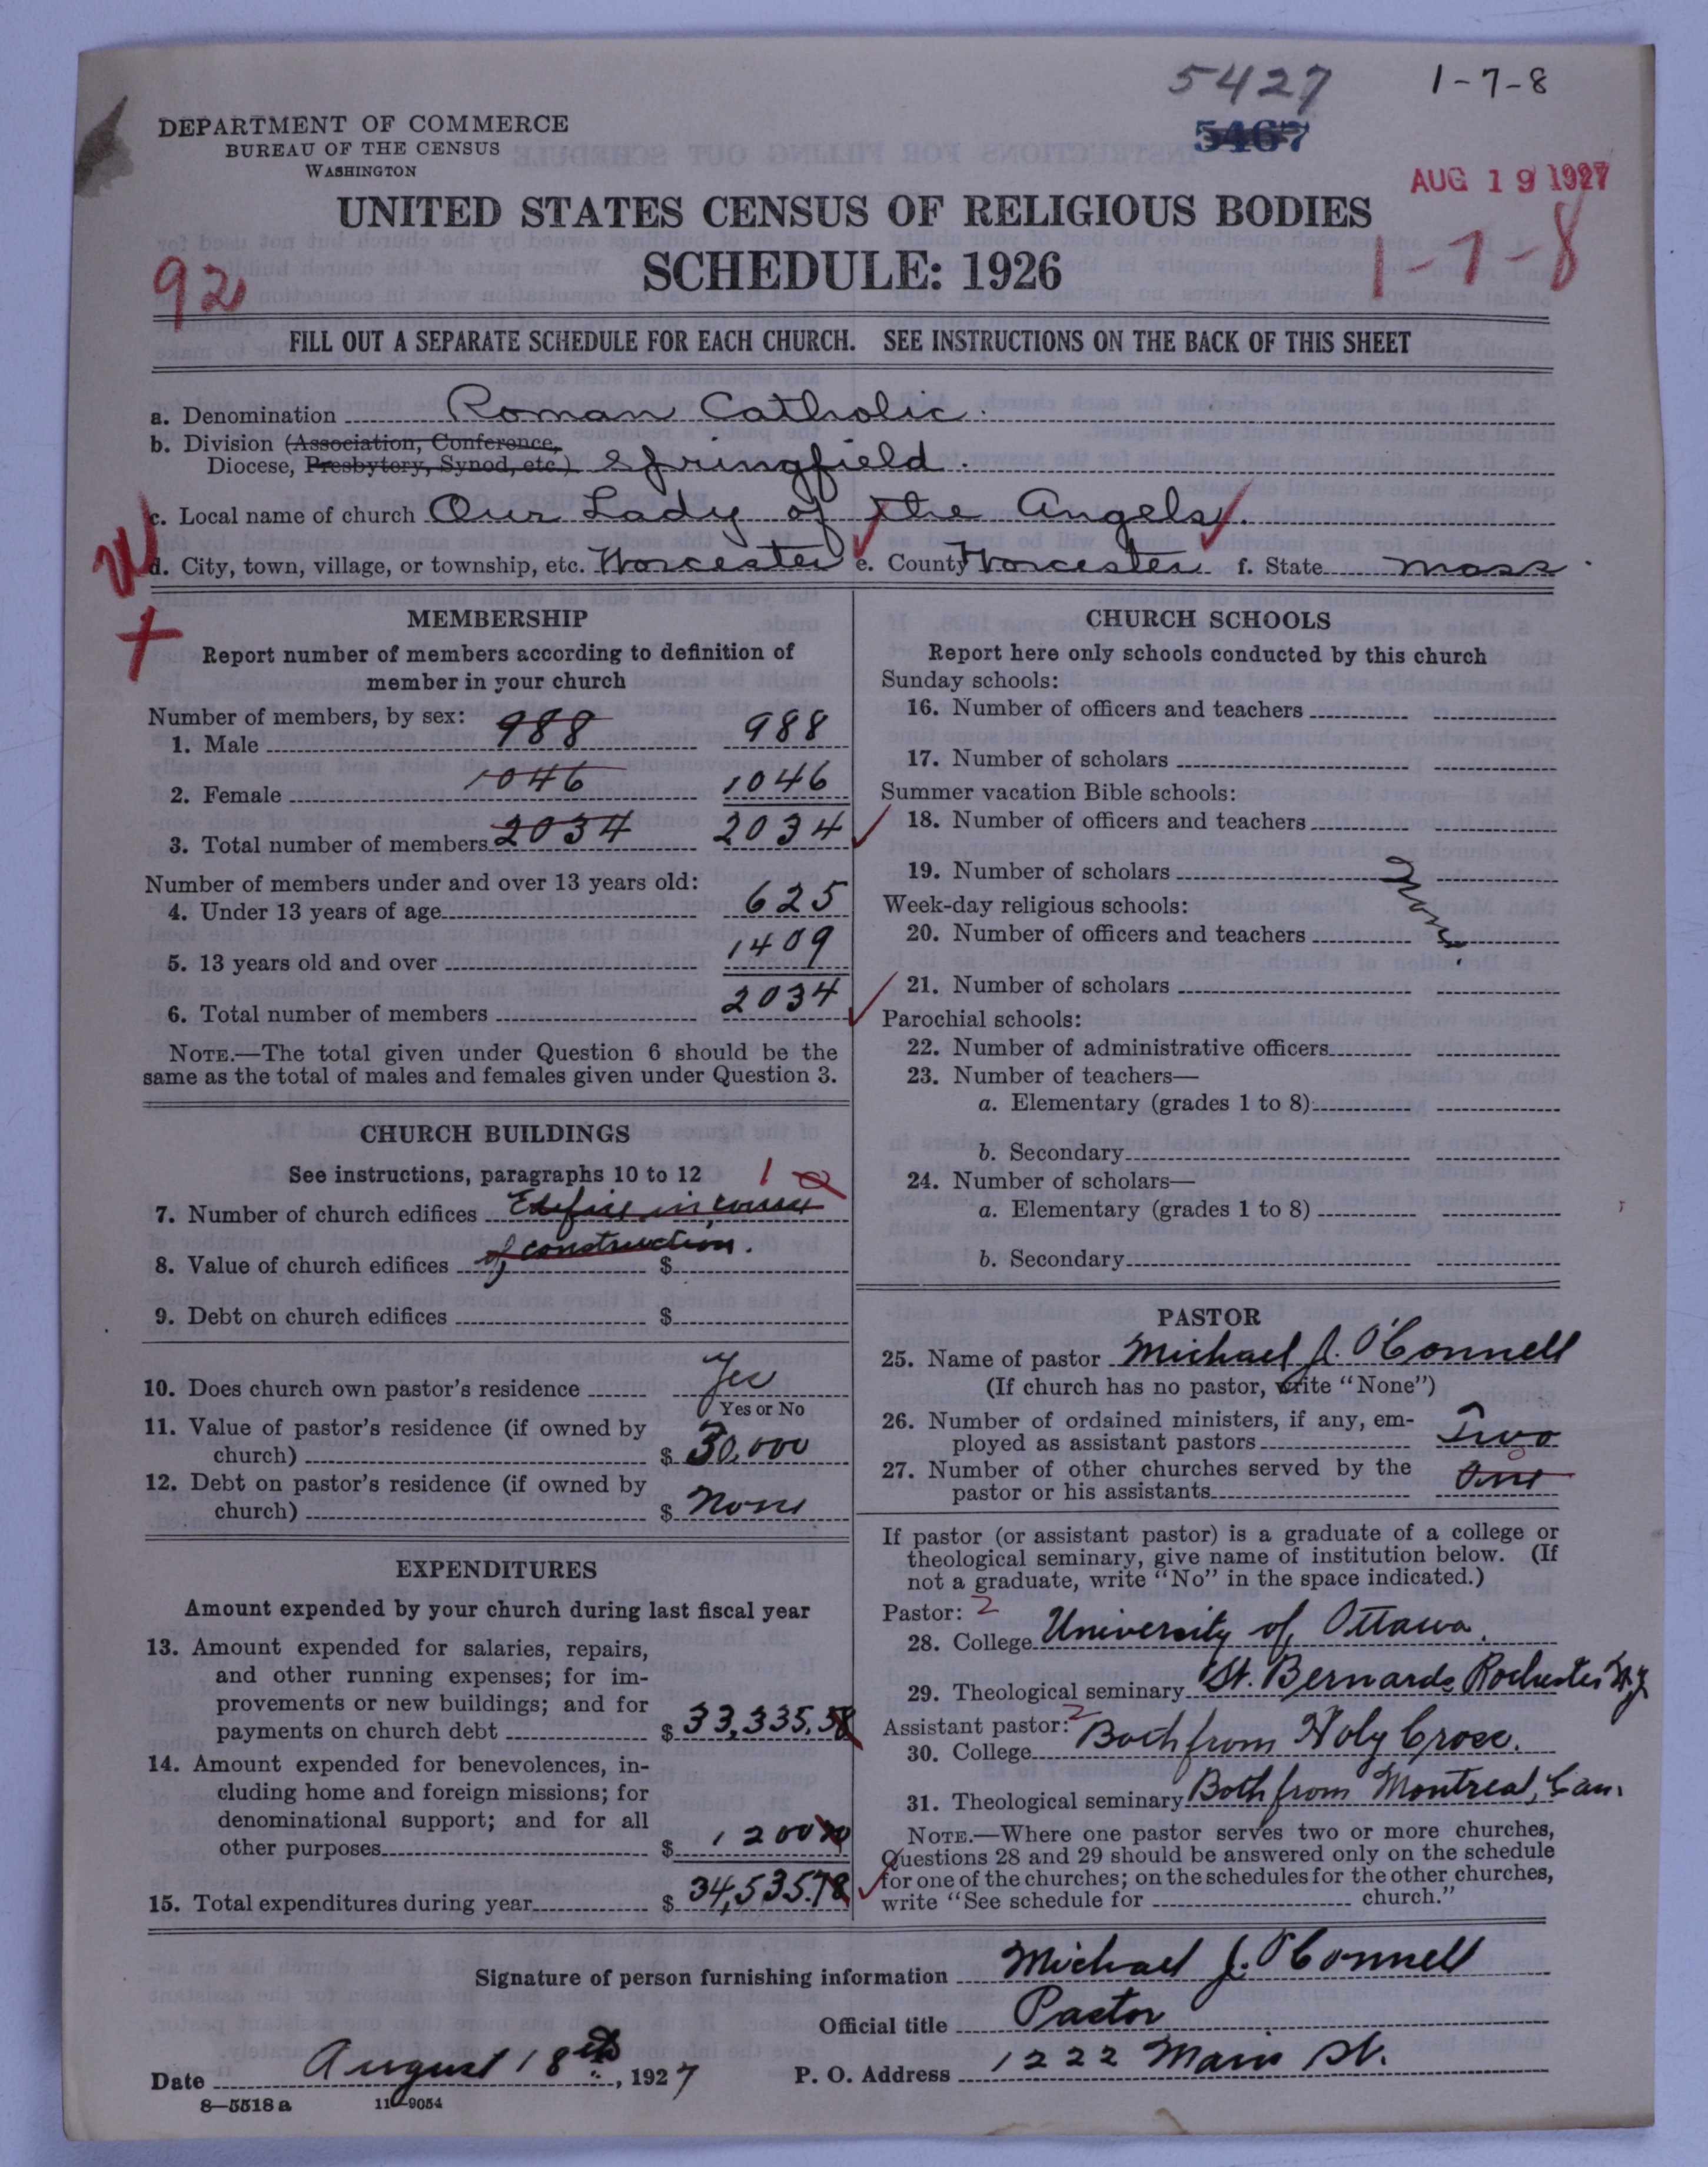 5427
1-7-8
5467
DEPARTMENT OF COMMERCE
BUREAU OF THE CENSUS
WASHINGTON
AUG 19 1927
UNITED STATES CENSUS OF RELIGIOUS BODIES
SCHEDULE: 1926
92
1-7-8
FILL OUT A SEPARATE SCHEDULE FOR EACH CHURCH. SEE INSTRUCTIONS ON THE BACK OF THIS SHEET
a. Denomination Roman Catholic.
b. Division (Association, Conference,
Diocese, Presbytery, Synod, etc.) Springfield.
c. Local name of church Our Lady of the Angels.
d. City, town, village, or township, etc. Worcester e. County Worcester f. State Mass.
MEMBERSHIP
Report number of members according to definition of
member in your church
Number of members, by sex:
1. Male 988 988
2. Female 1046 1046
3. Total number of members 2034 2034
Number of members under and over 13 years old:
4. Under 13 years of age 625
5. 13 years old and over 1409
6. Total number of members 2034
NOTE.—The total given under Question 6 should be the
same as the total of males and females given under Question 3.
CHURCH BUILDINGS
See instructions, paragraphs 10 to 12 1
7. Number of church edifices Edifice in course
8. Value of church edifices of construction. $
9. Debt on church edifices $
10. Does church own pastor's residence Yes
Yes or No
11. Value of pastor's residence (if owned by
church) $ 30,000
12. Debt on pastor's residence (if owned by
church) $ None
EXPENDITURES
Amount expended by your church during last fiscal year
13. Amount expended for salaries, repairs,
and other running expenses; for im-
provements or new buildings; and for
payments on church debt $ 33,335.58
14. Amount expended for benevolences, in-
cluding home and foreign missions; for
denominational support; and for all
other purposes $ 1200
15. Total expenditures during year $ 34,535.78
CHURCH SCHOOLS
Report here only schools conducted by this church
Sunday schools:
16. Number of officers and teachers
17. Number of scholars
Summer vacation Bible schools:
18. Number of officers and teachers
19. Number of scholars
None.
Week-day religious schools:
20. Number of officers and teachers
21. Number of scholars
Parochial schools:
22. Number of administrative officers
23. Number of teachers—
a. Elementary (grades 1 to 8)
b. Secondary
24. Number of scholars—
a. Elementary (grades 1 to 8)
b. Secondary
PASTOR
25. Name of pastor Michael J. O'Connell
(If church has no pastor, write "None")
26. Number of ordained ministers, if any, em-
ployed as assistant pastors Two
27. Number of other churches served by the 0
pastor or his assistants One
If pastor (or assistant pastor) is a graduate of a college or
theological seminary, give name of institution below. (If
not a graduate, write "No" in the space indicated.)
Pastor: 2
28. College University of Ottawa.
29. Theological seminary St. Bernards Rochester N.Y.
Assistant pastor: 2
30. College Both from Holy Cross.
31. Theological seminary Both from Montreal, Can.
NOTE.—Where one pastor serves two or more churches,
Questions 28 and 29 should be answered only on the schedule
for one of the churches; on the schedules for the other churches,
write "See schedule for church."
Signature of person furnishing information Michael J. O'Connell
Official title Pastor
Date August 18th, 1927 P. O. Address 1222 Main St.
8—5518a 11—9054